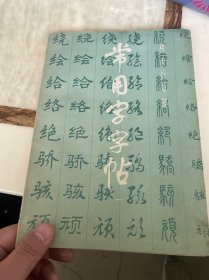 常用字字帖
绕绘给络绝骄骇顽
绕绘给络绝骄骇顽
绕绘给络绝骄骇顽
绕绘给络绝骄骇顽
繞繪給絡絕驕駭頑